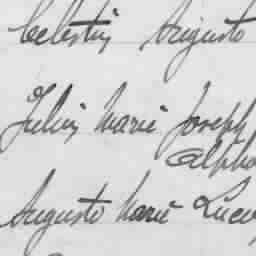 Celestin Auguste
Julien Marie Joseph
Alpho
Auguste Marie Lucien